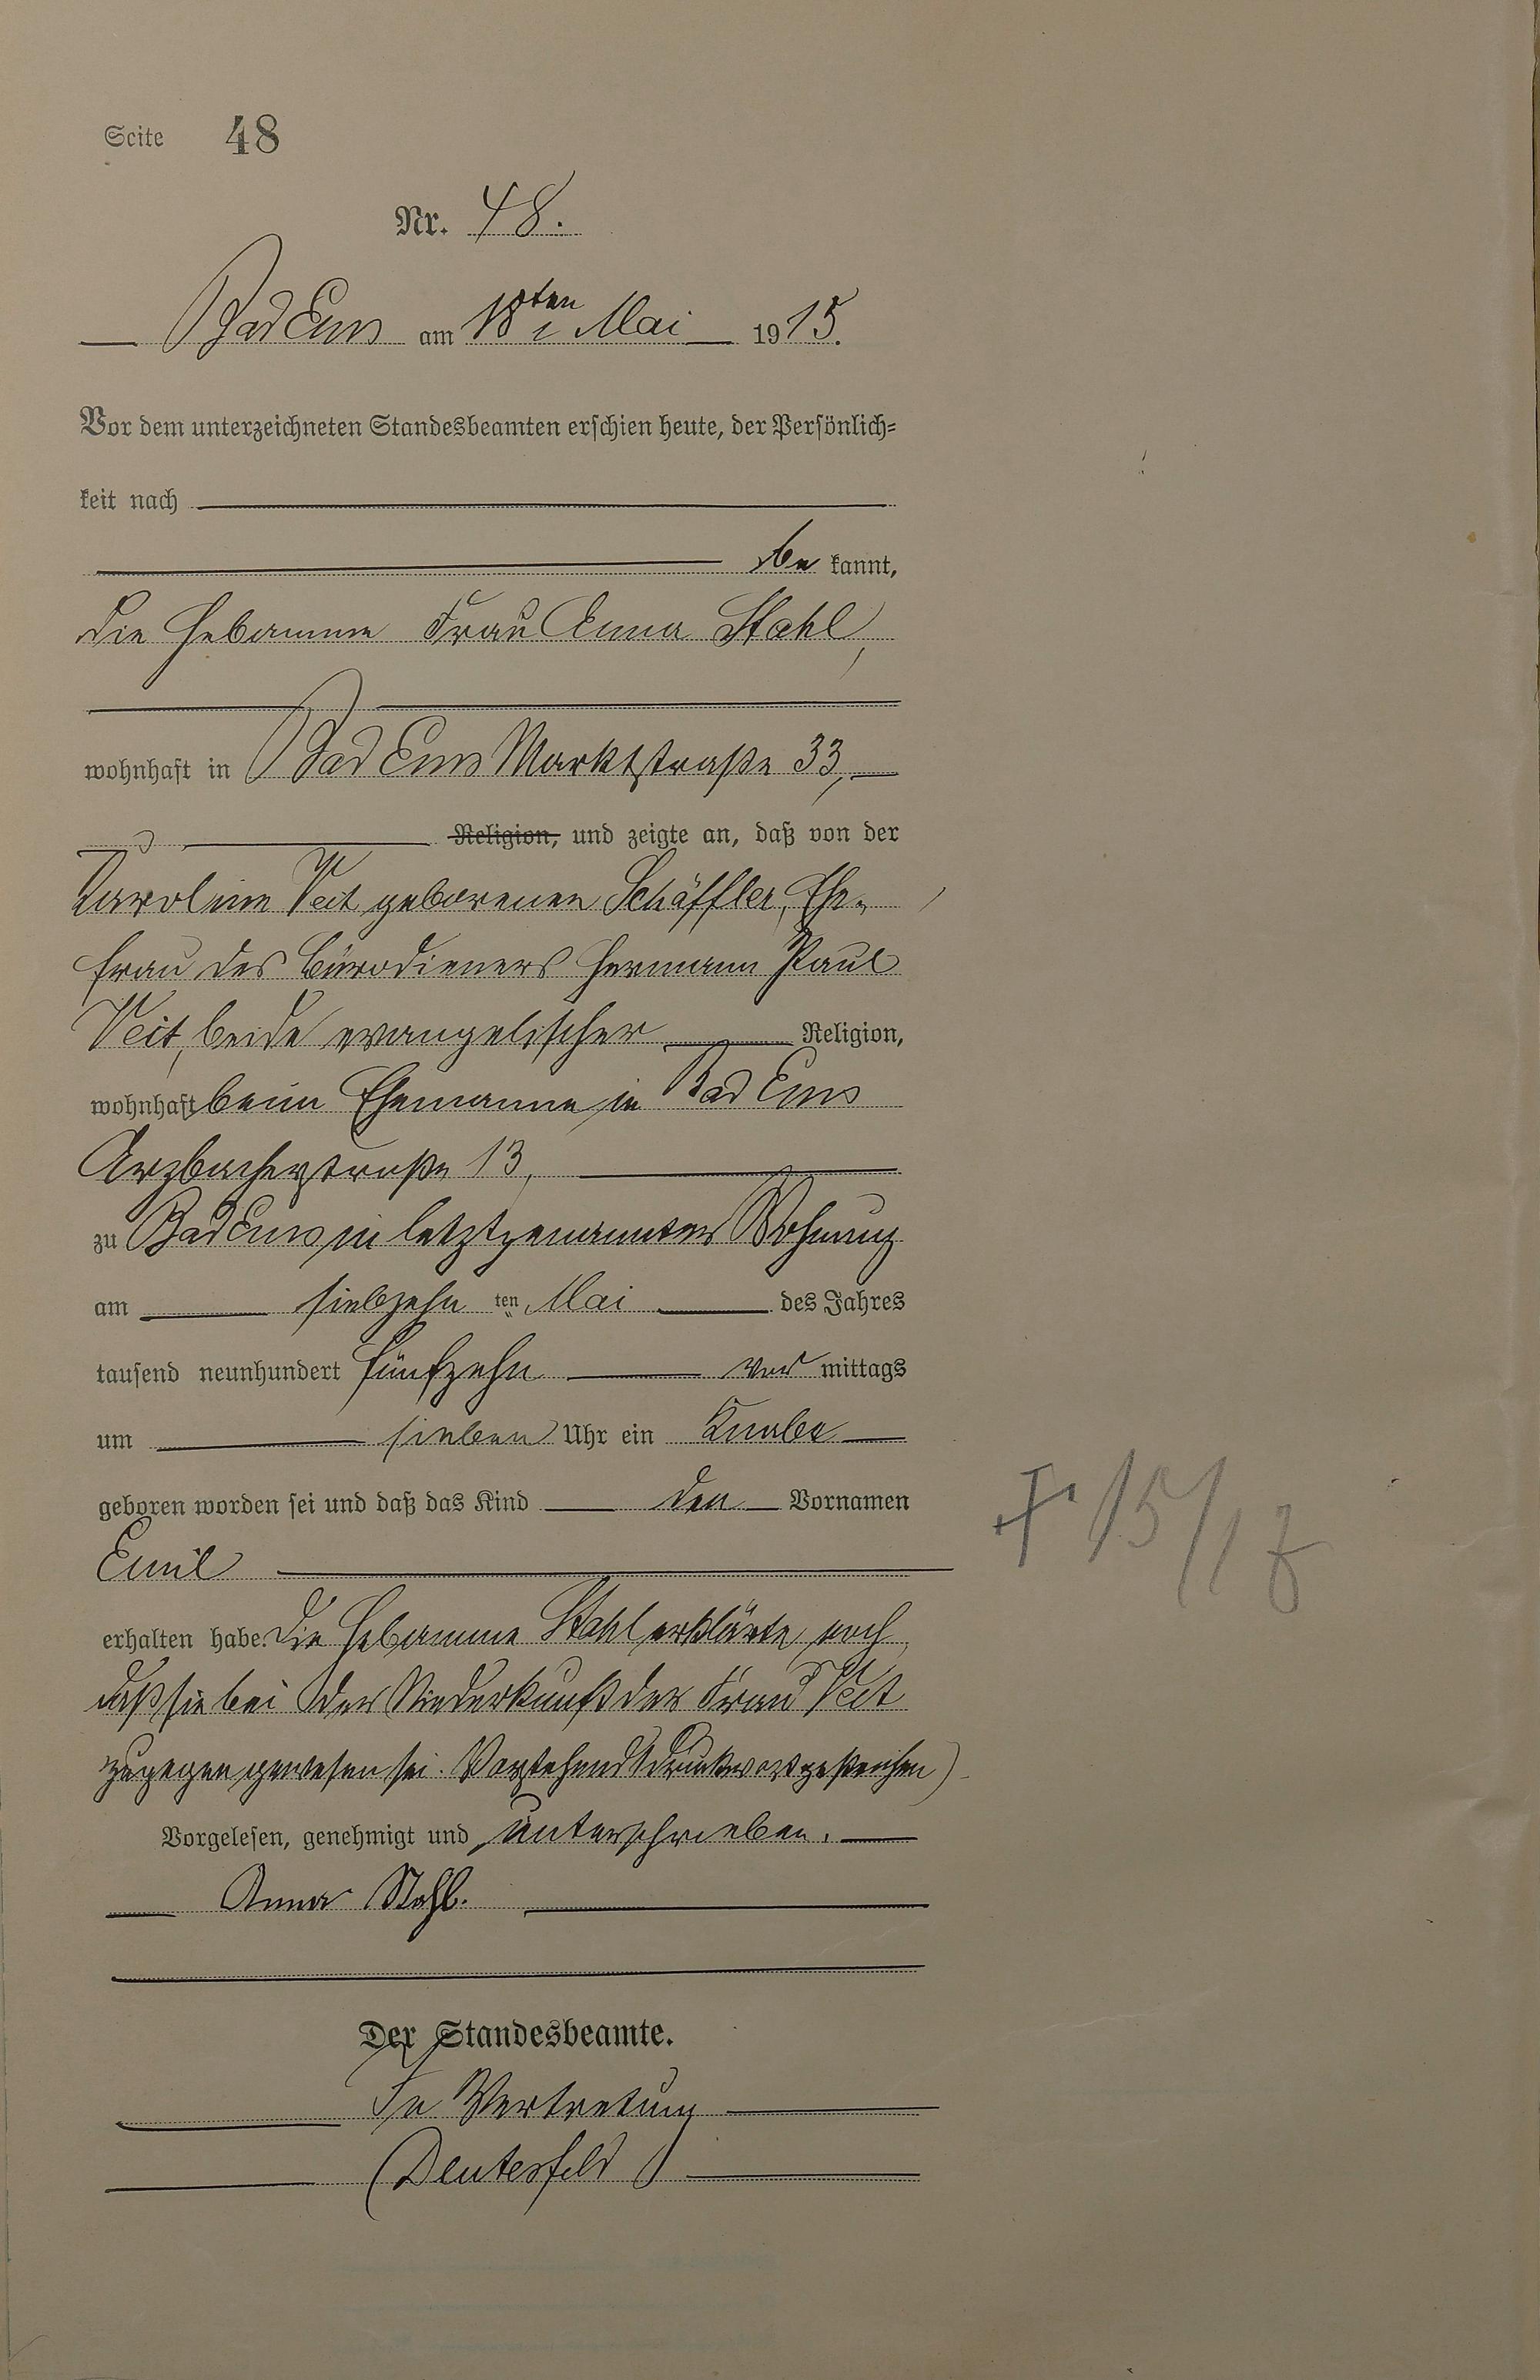 Seite 48
Nr. 48.
Bad Ems am 18ten Mai 1915.
Vor dem unterzeichneten Standesbeamten erschien heute, der Persönlich-
keit nach
be kannt,
die Hebamme Frau Anna Stahl,
wohnhaft in Bad Ems Marktstraße 33,
Religion, und zeigte an, daß von der
Karoline Veit geborenen Schäffler, Ehe-
frau des Bürodieners Hermann Paul
Veit, beide evangelischer Religion,
wohnhaft beim Ehemanne in Bad Ems
Arzbacherstraße 13,
zu Bad Ems in letztgenannter Wohnung
am siebzehn ten Mai des Jahres
tausend neunhundert fünfzehn vor mittags
um sieben Uhr ein Knabe
geboren worden sei und daß das Kind den Vornamen
Emil
erhalten habe. Die Hebamme Stahl erklärte noch,
daß sie bei der Niederkunft der Frau Veit
zugegen gewesen sei. (Vorstehend 1 Druckwort gestrichen)
Vorgelesen, genehmigt und unterschrieben.
Anna Stahl.
Der Standesbeamte.
In Vertretung
(Deutesfeld)
† 15/17